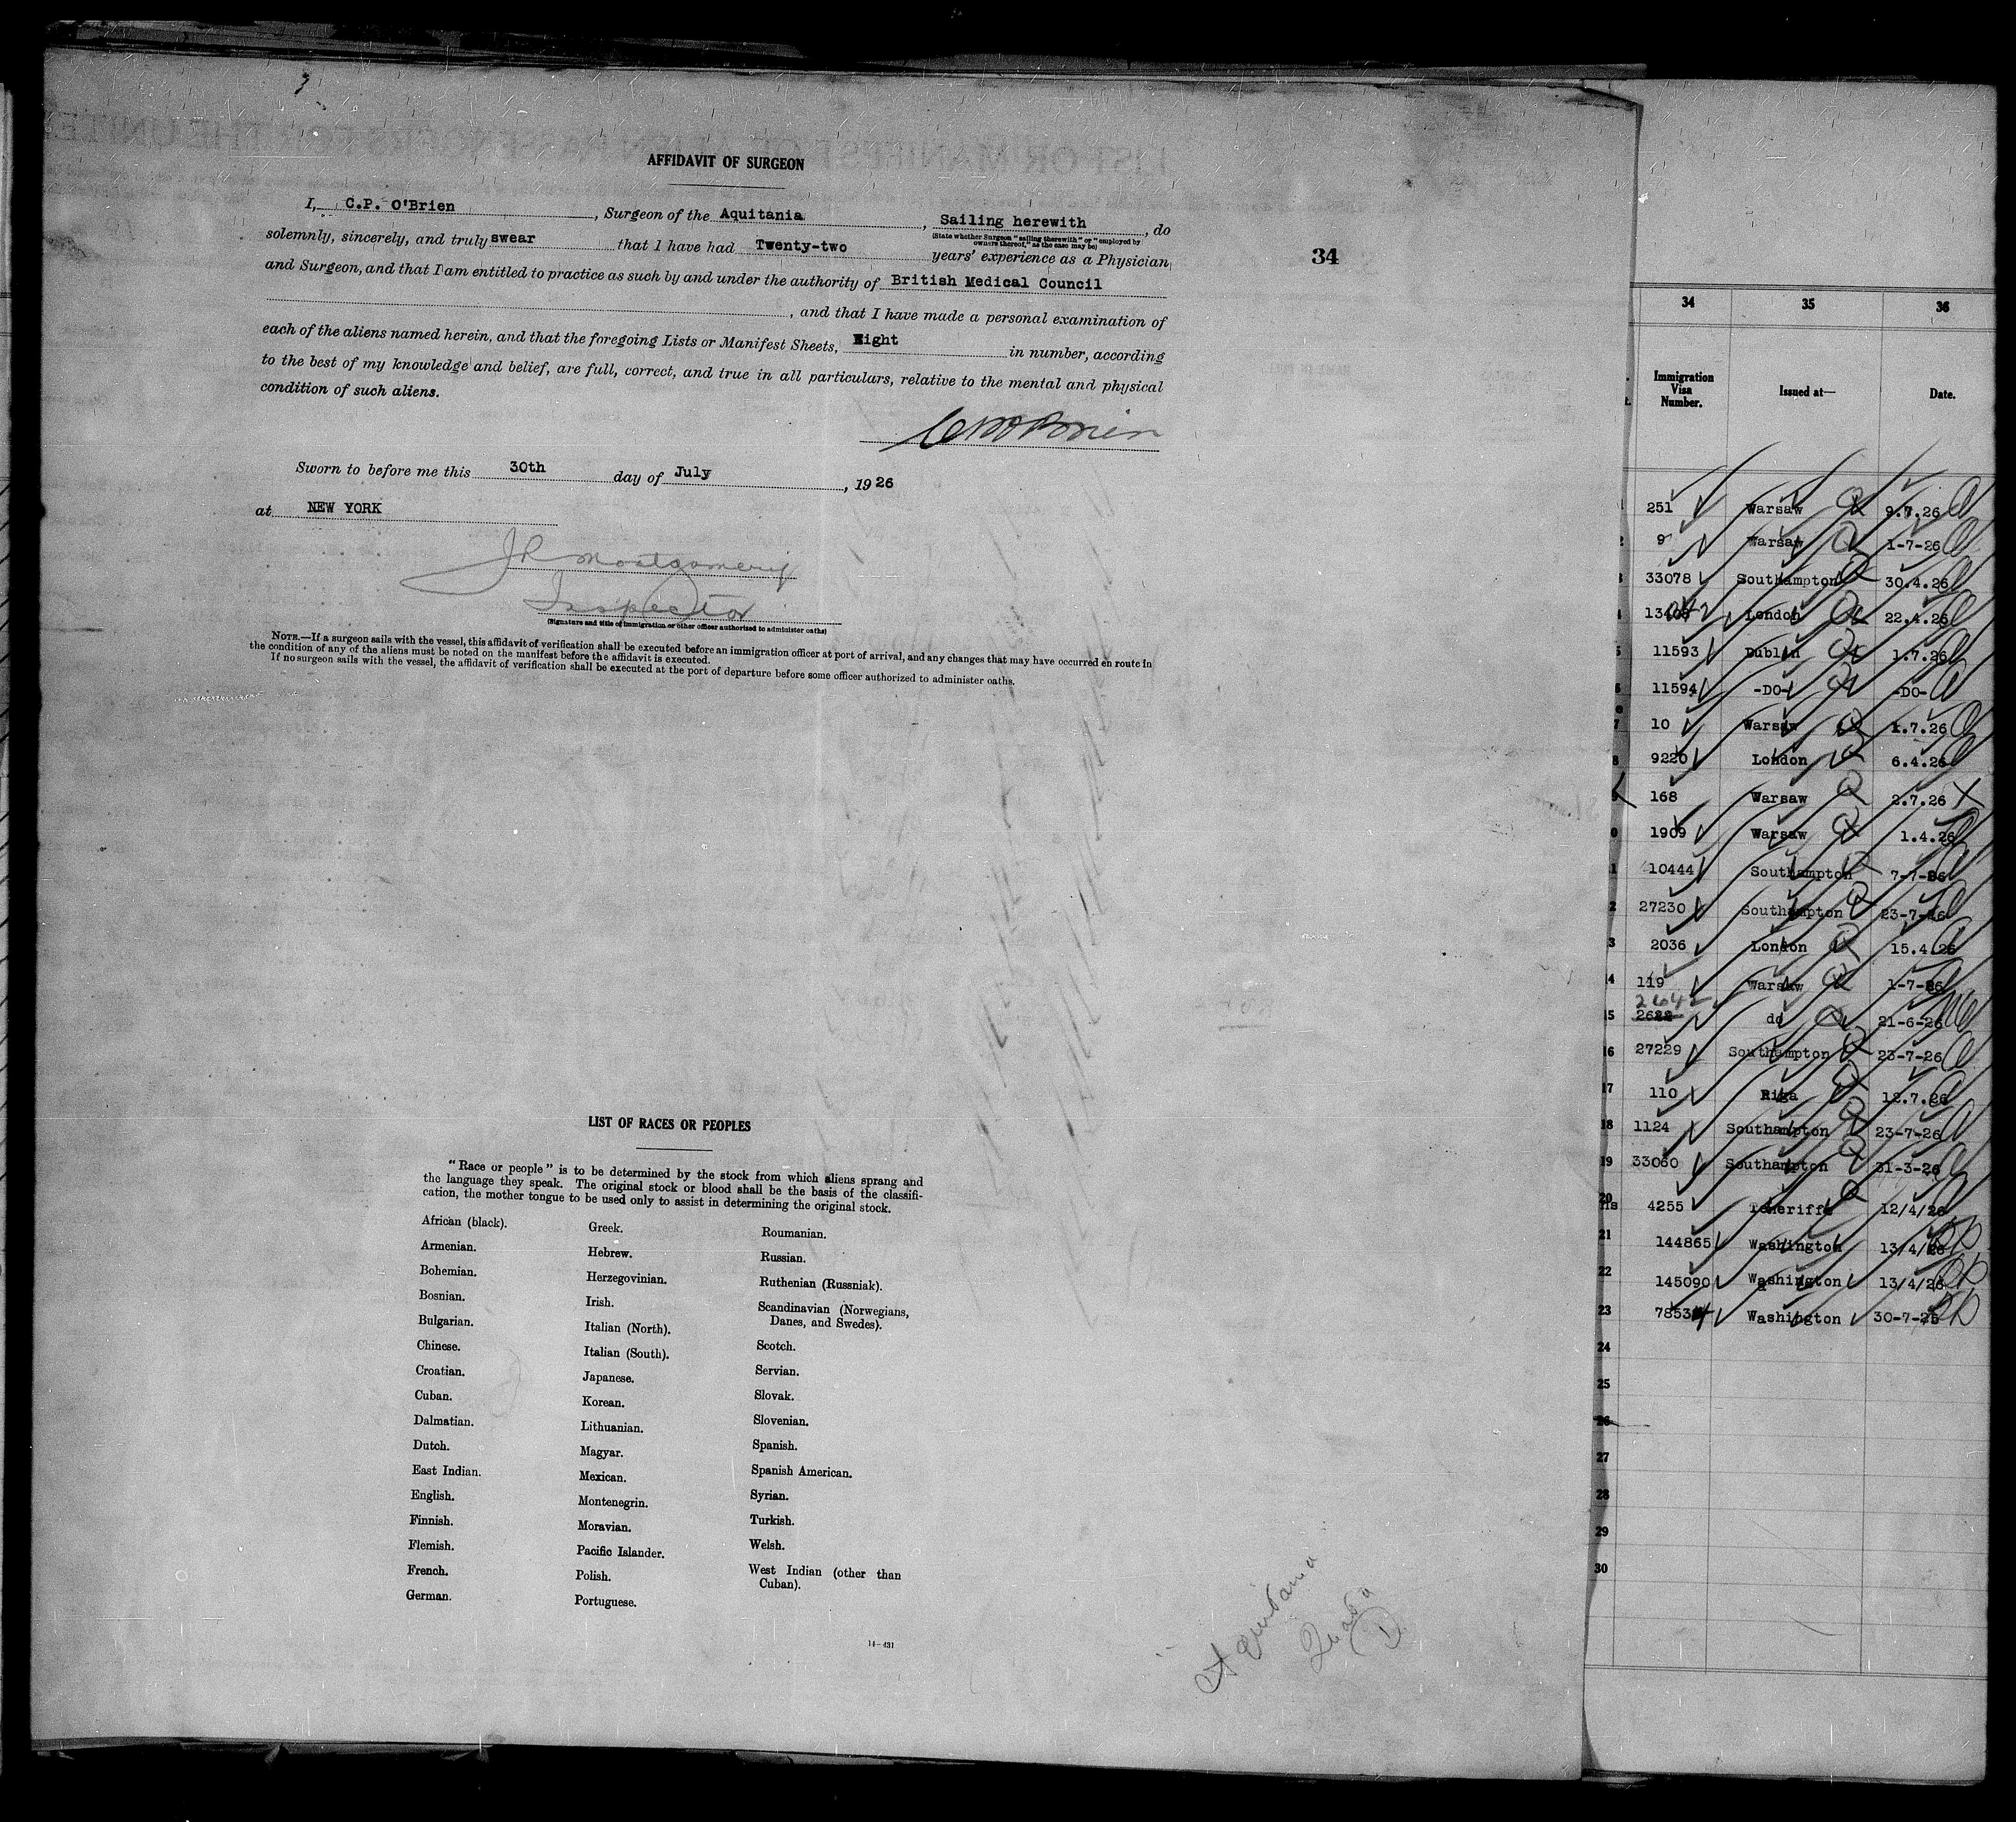 AFFIDAVIT OF SURGEON
I, C.P. O'Brien, Surgeon of the Aquitania, Sailing herewith, do
(State whether Surgeon "sailing therewith" or "employed by
owners thereof," as the case may be)
solemnly, sincerely, and truly swear that I have had Twenty-two years' experience as a Physician
and Surgeon, and that I am entitled to practice as such by and under the authority of British Medical Council
, and that I have made a personal examination of
each of the aliens named herein, and that the foregoing Lists or Manifest Sheets, Eight in number, according
to the best of my knowledge and belief, are full, correct, and true in all particulars, relative to the mental and physical
condition of such aliens.
Sworn to before me this 30th day of July, 1926
at NEW YORK
J R Montgomery
Inspector
(Signature and title of immigration or other officer authorized to administer oaths)
NOTE.—If a surgeon sails with the vessel, this affidavit of verification shall be executed before an immigration officer at port of arrival, and any changes that may have occurred en route in
the condition of any of the aliens must be noted on the manifest before the affidavit is executed.
If no surgeon sails with the vessel, the affidavit of verification shall be executed at the port of departure before some officer authorized to administer oaths.
34
LIST OF RACES OR PEOPLES
"Race or people" is to be determined by the stock from which aliens sprang and
the language they speak. The original stock or blood shall be the basis of the classifi-
cation, the mother tongue to be used only to assist in determining the original stock.
African (black).
Armenian.
Bohemian.
Bosnian.
Bulgarian.
Chinese.
Croatian.
Cuban.
Dalmatian.
Dutch.
East Indian.
English.
Finnish.
Flemish.
French.
German.
Greek.
Hebrew.
Herzegovinian.
Irish.
Italian (North).
Italian (South).
Japanese.
Korean.
Lithuanian.
Magyar.
Mexican.
Montenegrin.
Moravian.
Pacific Islander.
Polish.
Portuguese.
Roumanian.
Russian.
Ruthenian (Russniak).
Scandinavian (Norwegians,
Danes, and Swedes).
Scotch.
Servian.
Slovak.
Slovenian.
Spanish.
Spanish American.
Syrian.
Turkish.
Welsh.
West Indian (other than
Cuban).
14—431
Aquitania
34 35 36
Immigration Visa Number. Issued at— Date.
251 Warsaw 9.7.26
9 Warsaw 1-7-26
33078 Southampton 30.4.26
London 22.4.26
11593 Dublin 1.7.26
11594 -DO- -DO-
10 Warsaw 1.7.26
9220 London 6.4.26
168 Warsaw 2.7.26
1909 Warsaw 1.4.26
10444 Southampton 7-7-26
27230 Southampton 23-7-26
2036 London 15.4.26
119 Warsaw 1-7-26
2642
2622 do 21-6-26
16 27229 Southampton 23-7-26
17 110 Riga 12.7.26
18 1124 Southampton 23-7-26
19 33060 Southampton 31-3-26
20 4255 Teneriffe 12/4/26
21 144865 Washington 13/4/26
22 145090 Washington 13/4/26
23 78534 Washington 30-7-25
24
25
26
27
28
29
30